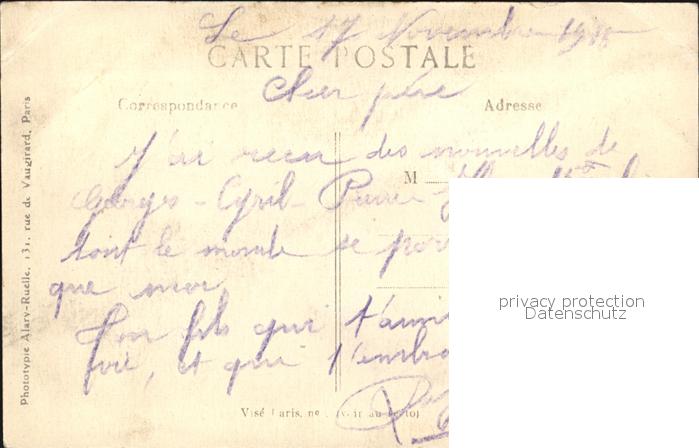 Le 17 Novembre
CARTE POSTALE
Cher père
Correspondance
Adresse
J'ai reçu des nouvelles de
M
Georges - Cyril - Pierre
tout le monde se por
que moi
Ton fils qui t'aime
fois, et qui t'embra
privacy protection
Datenschutz
Visé Paris, no
Phototypie Alary-Ruelle, 131, rue de Vaugirard, Paris